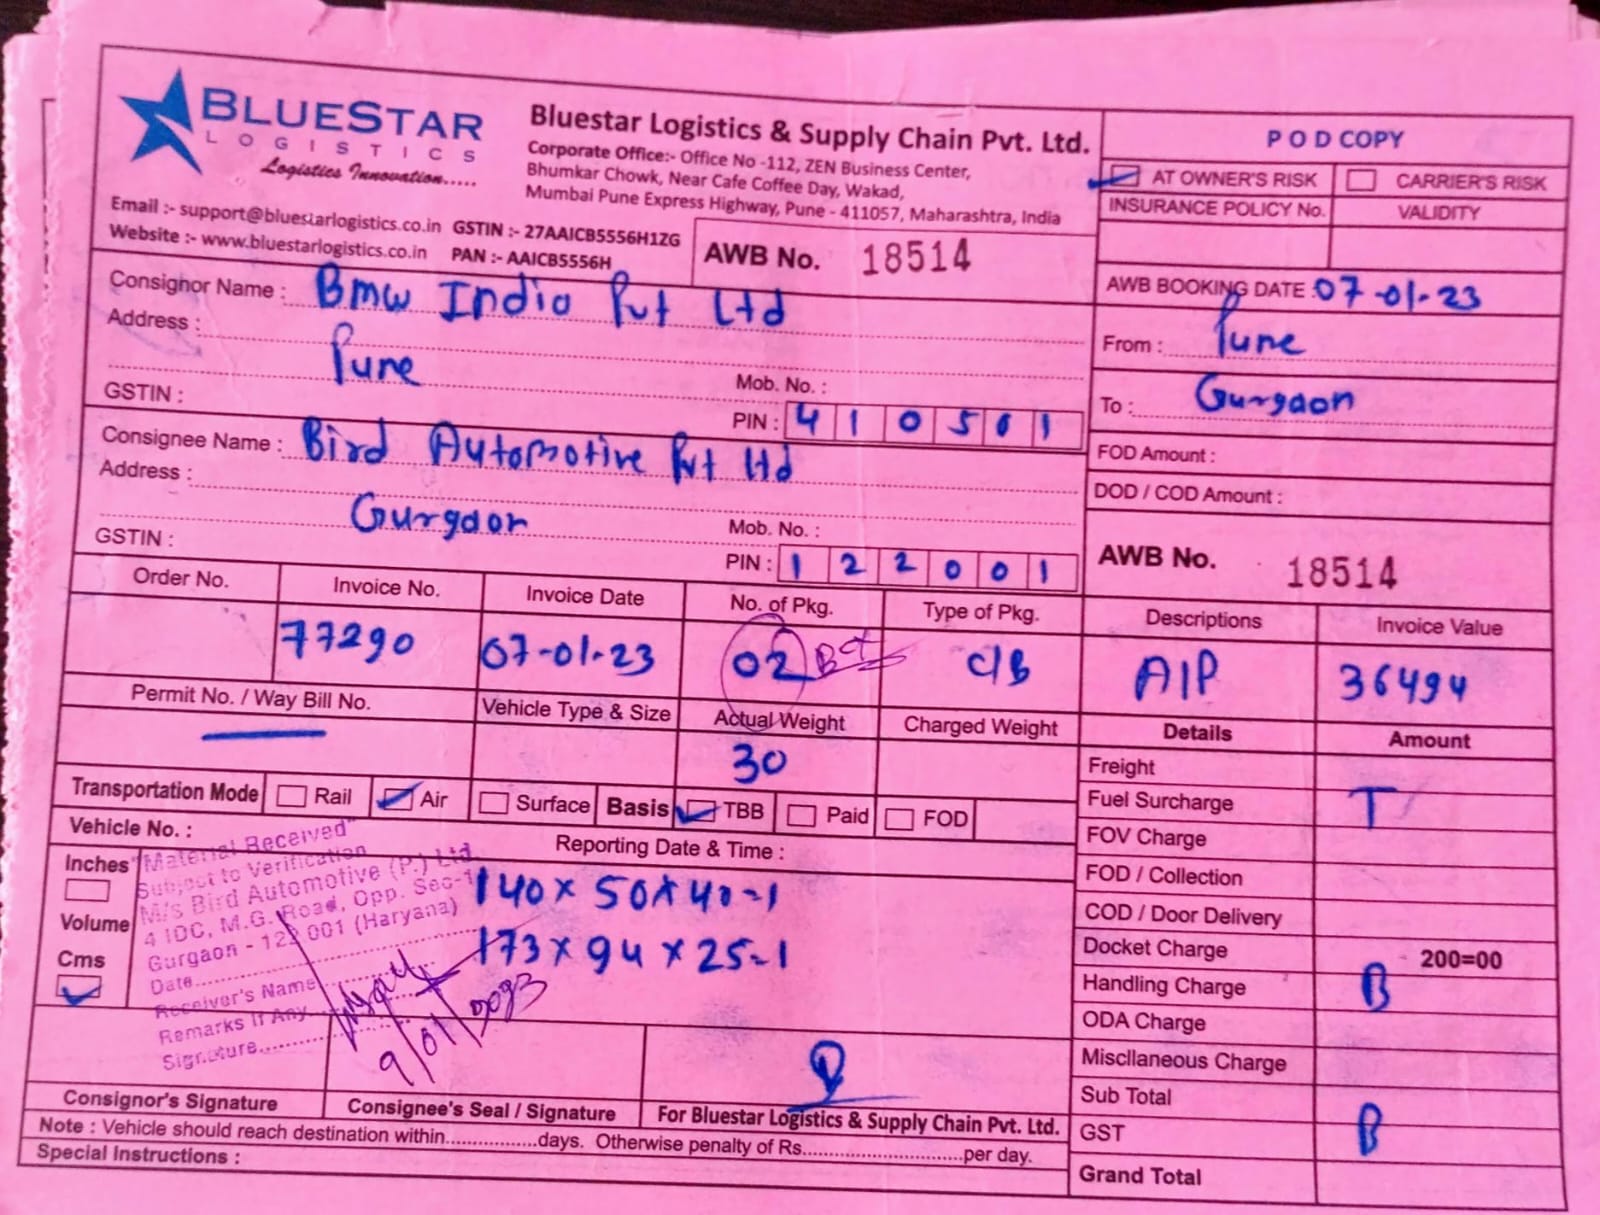 BLUESTAR
LOGISTICS
Logistics Innovation.....
Bluestar Logistics & Supply Chain Pvt. Ltd.
Corporate Office:- Office No -112, ZEN Business Center,
Bhumkar Chowk, Near Cafe Coffee Day, Wakad,
Mumbai Pune Express Highway, Pune - 411057, Maharashtra, India
Email :- support@bluestarlogistics.co.in GSTIN :- 27AAICB5556H1ZG
Website :- www.bluestarlogistics.co.in PAN :- AAICB5556H
AWB No. 18514
POD COPY
AT OWNER'S RISK CARRIER'S RISK
INSURANCE POLICY No. VALIDITY
AWB BOOKING DATE : 07-01-23
From : Pune
To : Gurgaon
FOD Amount :
DOD / COD Amount :
AWB No. 18514
Consignor Name : Bmw India Pvt Ltd
Address :
Pune
Mob. No. :
GSTIN :
PIN : 410501
Consignee Name : Bird Automotive Pvt Ltd
Address :
Gurgaon
Mob. No. :
GSTIN :
PIN : 122001
Order No. Invoice No. Invoice Date No. of Pkg. Type of Pkg. Descriptions Invoice Value
77290 07-01-23 02 C/B A/P 36494
Permit No. / Way Bill No. Vehicle Type & Size Actual Weight Charged Weight Details Amount
30
Transportation Mode Rail Air Surface Basis TBB Paid FOD
Vehicle No. :
Reporting Date & Time :
Inches
Volume
Cms
140 x 50 x 40-1
173 x 94 x 25-1
"Material Received"
Subject to Verification
M/s Bird Automotive (P.) Ltd.
4 IDC, M.G. Road, Opp. Sec-1
Gurgaon - 122 001 (Haryana)
Date
Receiver's Name
Remarks If Any
Signature
9/01/2023
Freight
Fuel Surcharge T
FOV Charge
FOD / Collection
COD / Door Delivery
Docket Charge 200=00
Handling Charge B
ODA Charge
Miscllaneous Charge
Sub Total
GST B
Grand Total
Consignor's Signature Consignee's Seal / Signature For Bluestar Logistics & Supply Chain Pvt. Ltd.
Note : Vehicle should reach destination within.................days. Otherwise penalty of Rs.............................per day.
Special Instructions :